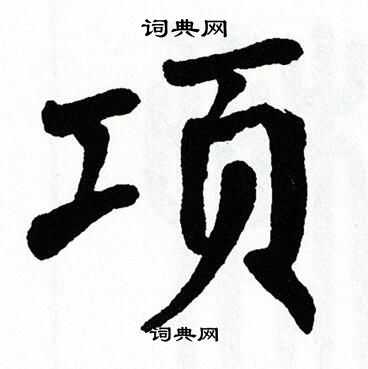 词典网
项
词典网